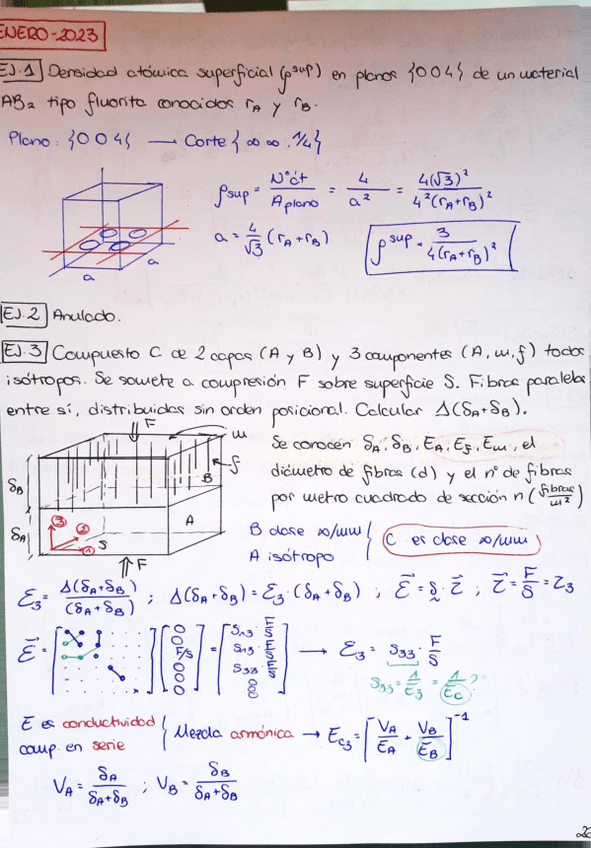 ENERO-2023
EJ.1 Densidad atómica superficial (ρ^sup) en planos {004} de un material
AB₂ tipo fluorita conocidos r_A y r_B.
Plano: {004} → Corte {∞ ∞ 1/4}
ρ_sup = Nºát / A_plano = 4 / a² = 4(√3)² / 4²(r_A+r_B)²
a = 4/√3 (r_A+r_B)
ρ^sup = 3 / 4(r_A+r_B)²
a
a
EJ.2 Anulado.
EJ.3 Compuesto C de 2 capas (A y B) y 3 componentes (A, m, f) todos
isótropos. Se somete a compresión F sobre superficie S. Fibras paralelas
entre sí, distribuidas sin orden posicional. Calcular Δ(δ_A+δ_B).
F
m
f
B
A
δ_B
δ_A
3
2
1
S
F
Se conocen δ_A, δ_B, E_A, E_f, E_m, el
diámetro de fibras (d) y el nº de fibras
por metro cuadrado de sección n (fibras/m²)
B clase ∞/mm
A isótropo
C es clase ∞/mm
ε₃ = Δ(δ_A+δ_B) / (δ_A+δ_B) ; Δ(δ_A+δ_B) = ε₃·(δ_A+δ_B) ; ε = s·τ ; τ = F/S = τ₃
ε = [ ] [0 0 F/S 0 0 0] = [s₁₃ F/S s₁₃ F/S s₃₃ F/S 0 0 0] → ε₃ = s₃₃ · F/S
s₃₃ = 1/E₃ = 1/E_C ?
E es conductividad
comp. en serie
Mezcla armónica → E_C₃ = [V_A/E_A + V_B/E_B]⁻¹
V_A = δ_A / δ_A+δ_B ; V_B = δ_B / δ_A+δ_B